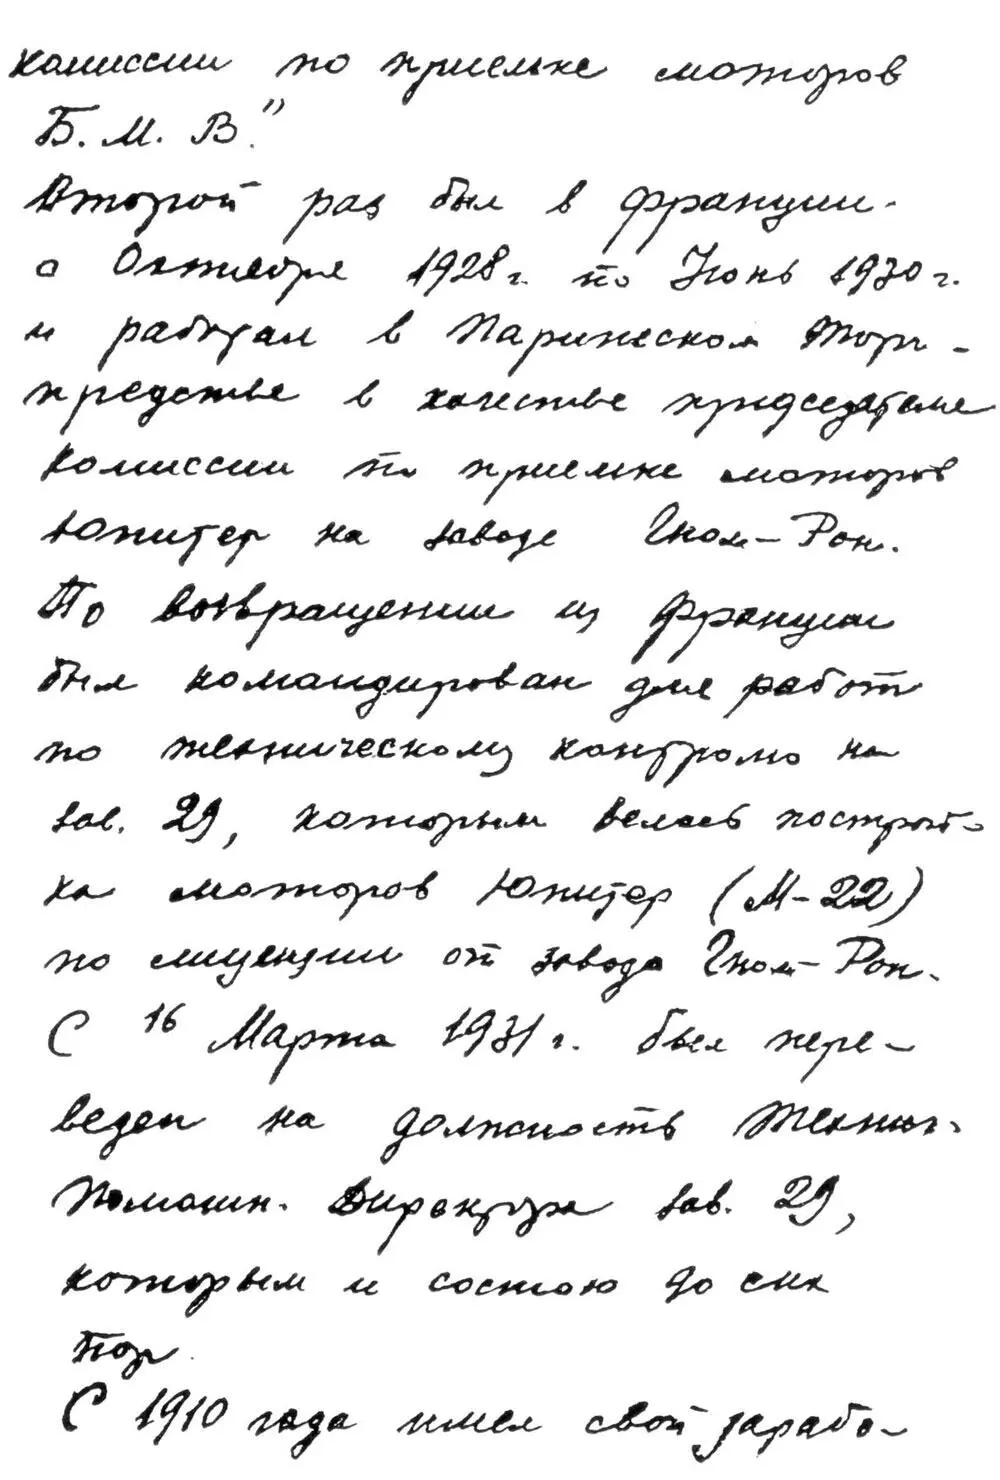 комиссии по приемке моторов
Б. М. В."
Второй раз был в Франции
с Октября 1928 г. по Июнь 1930 г.
и работал в Парижском Торг-
предстве в качестве председателя
комиссии по приемке моторов
Юпитер на заводе Гном-Рон.
По возвращении из Франции
был командирован для работ
по техническому контролю на
зав. 29, которым велась построй-
ка моторов Юпитер (М-22)
по лицензии от завода Гном-Рон.
С 16 Марта 1931 г. был пере-
веден на должность Технич.
Помощн. Директора зав. 29,
которым и состою до сих
пор.
С 1910 года имел свой зарабо-